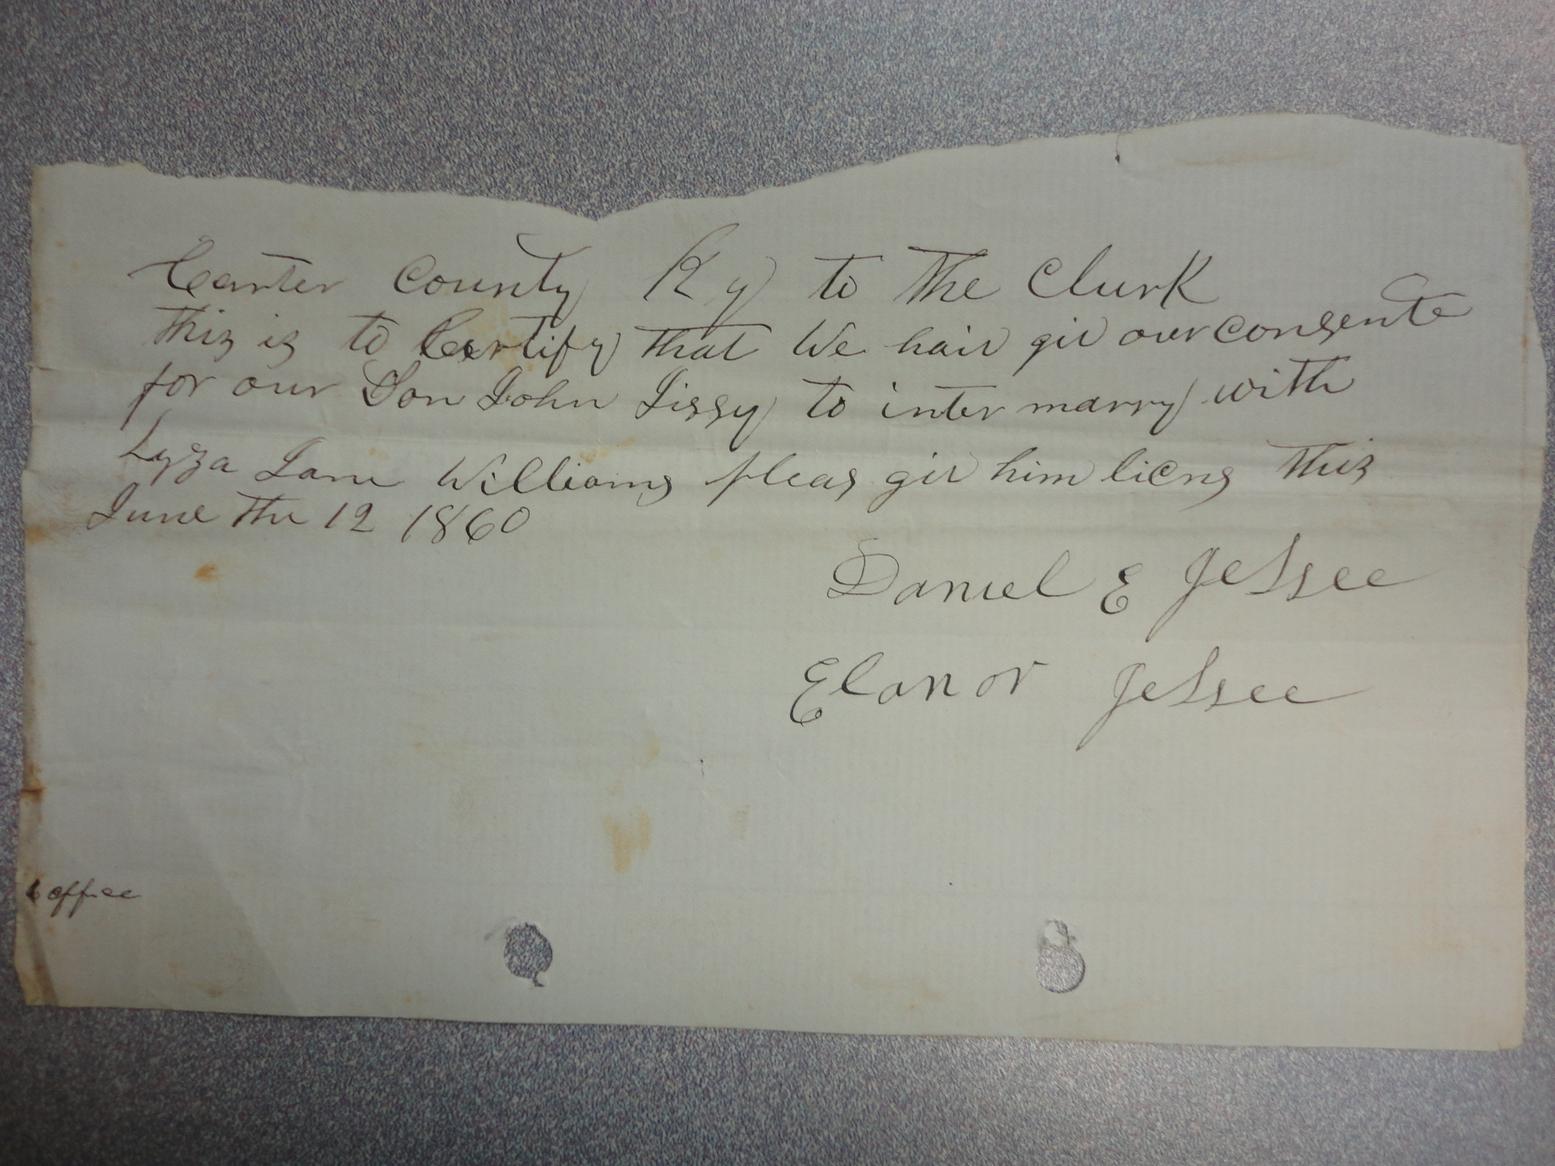 Carter County Ky to the Clurk
this is to Certify that We hair giv our consente
for our Son John Jissy to inter marry with
Lyza Jane Williams pleas giv him licns this
June the 12 1860
Daniel E Jessee
Elanor Jessee
office